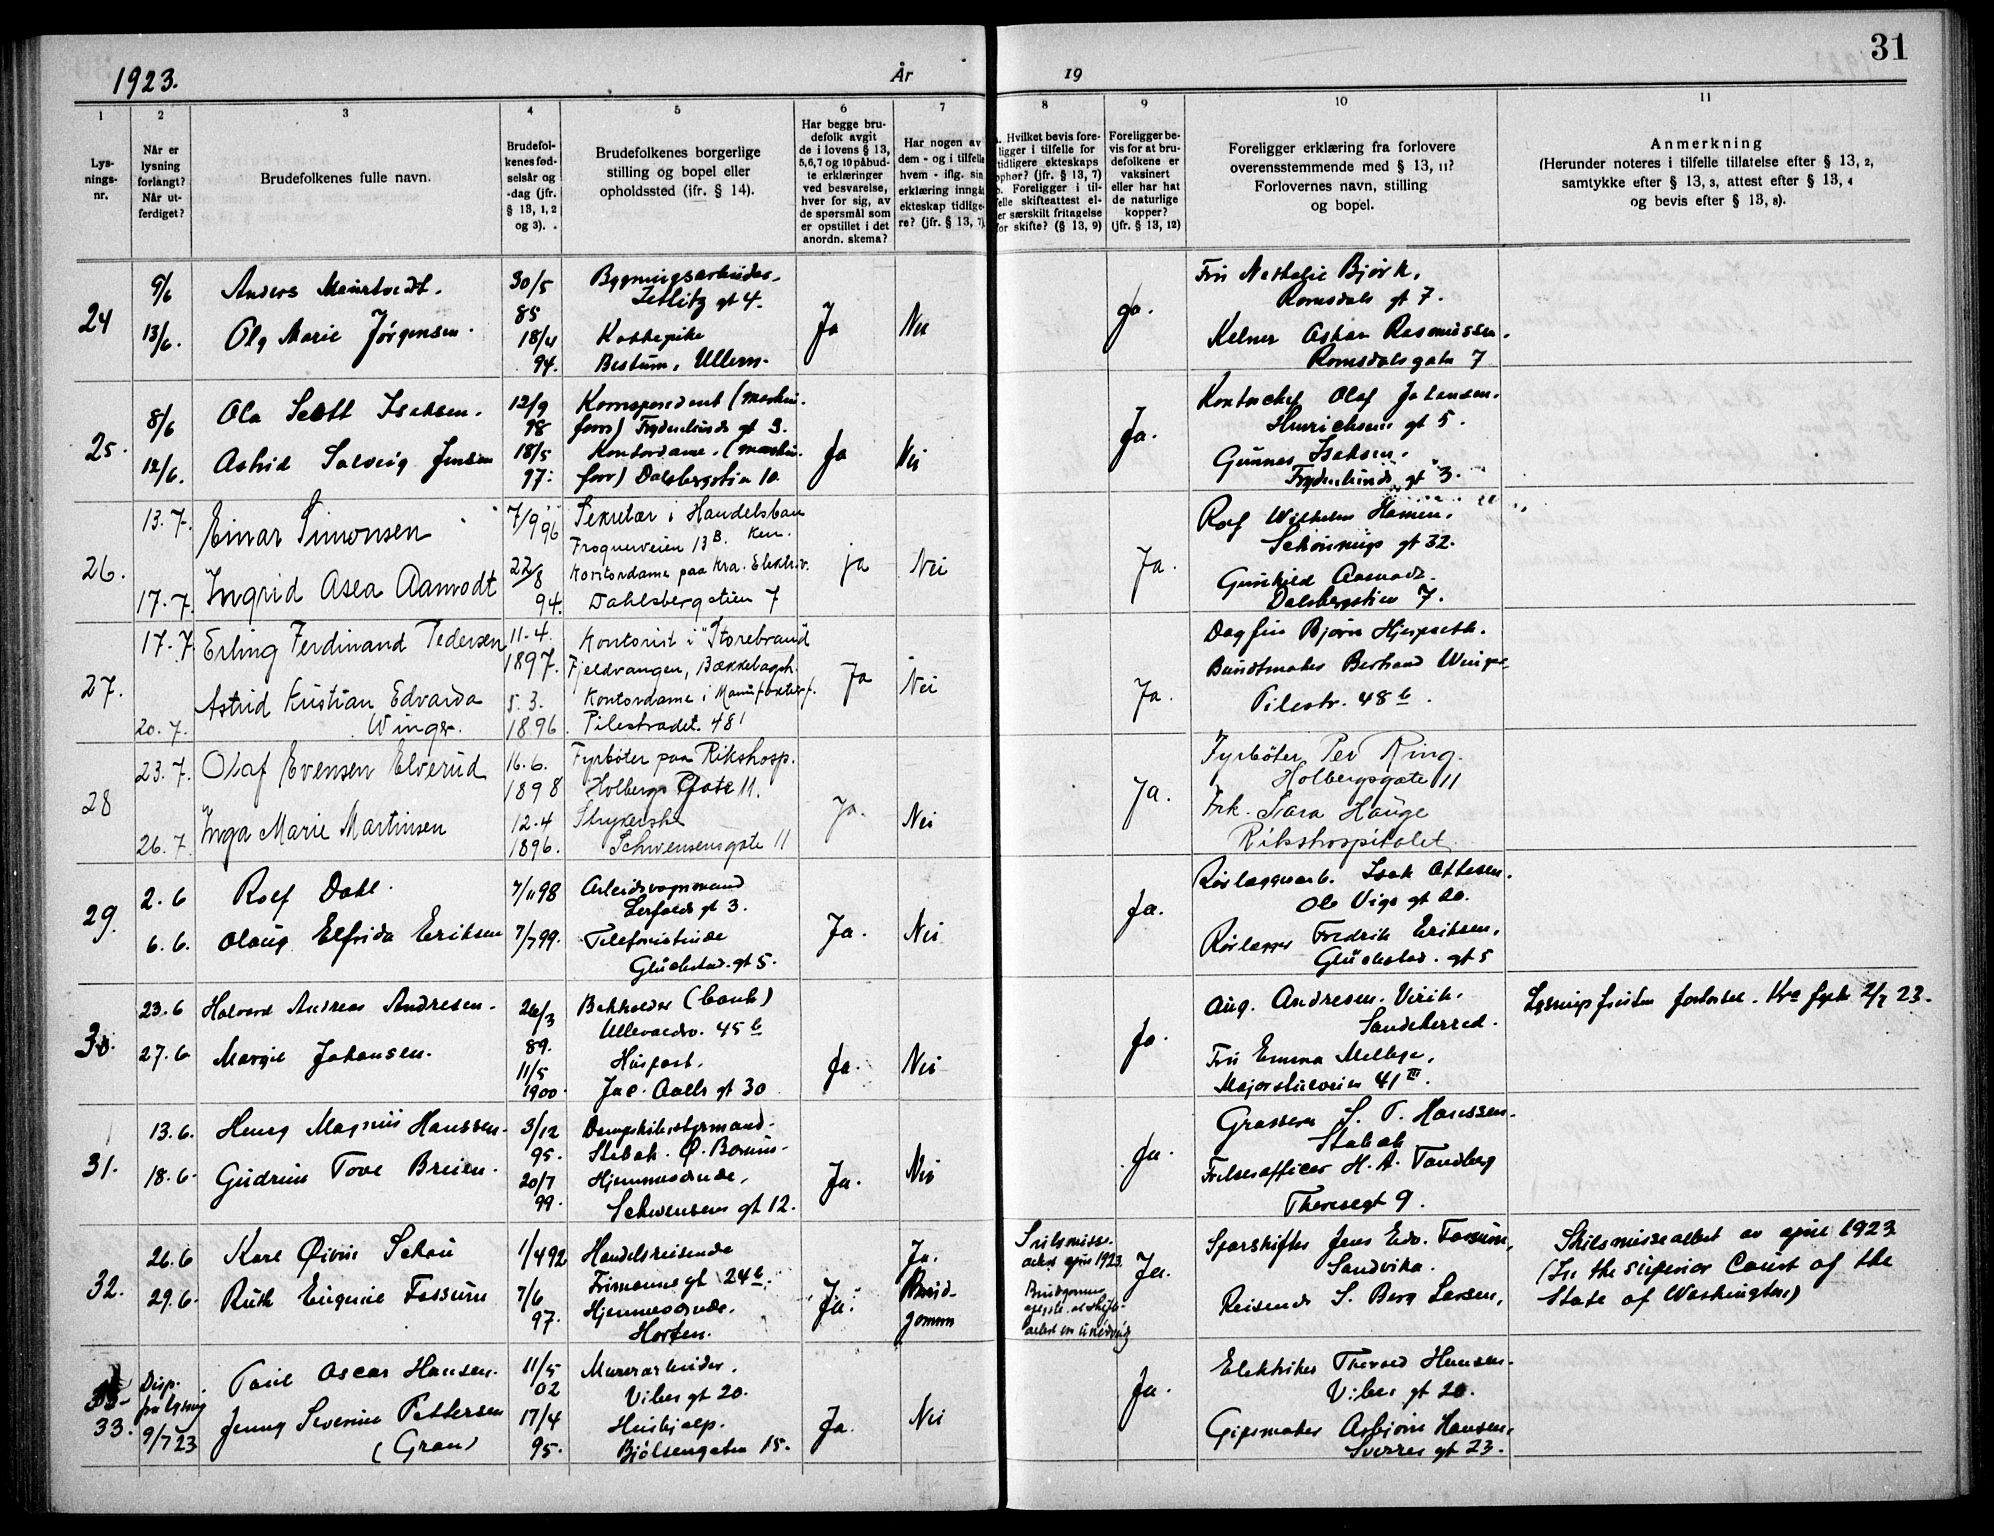 1923.
År
19
31
1 2 3 4 5 6 7 8 9 10 11
Lys-
nings-
nr.
Når er
lysning
forlangt?
Når ut-
ferdiget?
Brudefolkenes fulle navn.
Brudefol-
kenes fød-
selsår og
-dag (jfr.
§ 13, 1, 2
og 3).
Brudefolkenes borgerlige
stilling og bopel eller
opholdssted (ifr. § 14).
Har begge bru-
defolk avgit
de i lovens § 13,
5,6,7 og 10 påbud-
te erklæringer
ved besvarelse,
hver for sig, av
de spørsmål som
er opstillet i det
anordn. skema?
Har nogen av
dem - og i tilfelle
hvem - iflg. sin
erklæring inngåt
ekteskap tidlige-
re? (jfr. § 13, 7)
Hvilket bevis fore-
ligger i tilfelle for
tidligere ekteskaps
ophør? (jfr. § 13, 7)
Foreligger i til-
felle skifteattest el-
ler særskilt fritagelse
for skifte? (§ 13, 9)
Foreligger be-
vis for at bru-
defolkene er
vaksinert
eller har hat
de naturlige
kopper?
(jfr. § 13, 12)
Foreligger erklæring fra forlovere
overensstemmende med § 13, 11?
Forlovernes navn, stilling
og bopel.
Anmerkning
(Herunder noteres i tilfelle tillatelse efter § 13, 2,
samtykke efter § 13, 3, attest efter § 13, 4
og bevis efter § 13, 8).
24
9/6
13/6.
Anders
Olg Marie Jørgensen.
30/5
85
18/4
94.
Bygningsarbeider.
gt 4.
Kokkepike
Bestum, Ullern.
Ja
Nei
Ja.
Fru Nathalie Bjørk,
Romsdals gt 7.
Kelner Oskar Rasmussen.
Romsdalsgata 7
25.
8/6
12/6.
Ola Scott Isaksen.
Astrid Solveig Jensen
12/9
98
18/5
97.
Korrespondent (maskin.
forr) Frydenlunds gt 3.
Kontordame. (maskin.
forr) Dalsbergstien 10
Ja
Nei
Ja.
Kontorchef Olaf Johansen.
Henrichsens gt 5.
Gunnar Isaksen.
Frydenlunds gt 3.
26.
13.7.
17.7.
Einar Simonsen
Ingrid Asea Aamodt
7/9 96
22/8
94.
Sekretær i Handelsban
Frognerveien 13 B. ken.
Kontordame paa Kra. Elektr.v.
Dahlsbergstien 7
ja
Nei
Ja.
Rolf Wilhelm Hansen.
Schønnings gt 32.
Gunhild Aamodt.
Dalsbergstien 7.
27.
17.7.
20.7.
Erling Ferdinand Pedersen
Astrid Kristian Edvarda
Winger.
11-4.
1897.
5.3.
1896.
Kontorist i "Storebrand
Fjeldvangen, Bækkelagsh.
Kontordame i Manufakturf.
Pilestrædet. 48
Ja
Nei
Ja.
Dagfin Bjørn Hjerpseth.
Buntmaker Bertrand Winger
Pilestr. 48 b.
28
23.7.
26.7.
Olaf Evensen Elverud
Inga Marie Martinsen
16.6.
1898
12.4
1896.
Fyrbøter paa Rikshosp.
Holbergs Gate 11.
Strykerske
Schwensensgate 11
Ja.
Nei
Ja.
Fyrbøter Per Ring.
Holbergsgate 11
Frk. Sara Hauge
Rikshospitalet
29.
2.6
6.6.
Rolf Dahl.
Olaug Elfrida Eriksen
7/11 98
7/7 99.
Arbeidsvognmand
Lerfalds gt 3.
Telefonistinde
Glückstad. gt 5.
Ja.
Nei
Ja.
Rørlæggerarb. Isak Ottesen.
Ole Vigs gt 20.
Rørlægger Fredrik Eriksen,
Glückstad. gt 5
30.
23.6
27.6
Halvard Andreas Andresen.
Margit Johansen.
26/3
89.
11/5
1900.
Bokholder (bank)
Ullevoldsv. 45 b
Huspost.
Jac. Aalls gt 30
Ja.
Nei
Ja.
Aug. Andresen. Virik.
Sandeherred.
Fru Emma Mellbye,
Majorstuveien 41 III.
Lysningsfristen forlenget. Kra fylke 2/7 23.
31.
13.6.
18.6.
Henry Magnus Hanssen.
Gudrun Tove Breien.
3/12
95.
20/7
99.
Dampskibsstyrmand.
Stabæk. Ø. Bærum.
Hjemmeværende,
Schwensens gt 12.
Ja.
Nei
Ja.
Grosserer S. T. Hanssen.
Stabæk
Frelsesofficer H. A. Tandberg
Theresegt 9.
32.
26.6
29.6.
Karl Øivin Schou
Ruth Eugenie Fossum
1/4 92
7/6
97.
Handelsreisende
Frimannsgt 24 b.
Hjemmeværende.
Horten.
Ja.
Ja.
Brud-
gommen
Skilsmisse-
aktest april 1923.
Brudgommen
Ja.
Sparskifter Jens Edv. Fossum,
Sandvika.
Reisende S. Berg Larsen,
Skilsmisseattest av april 1923
(In the superior Court of the
State of Washington)
33.
Disp.
fra lysning
9/7 23
Paul Oscar Hansen.
Jenny Severine Pettersen
(Gran)
11/5
02
17/4
95.
Murerarbeider.
Vibes gt 20.
Hushjælp.
Bjølsengaten 15.
Ja.
Nei
Ja.
Elektriker Thorvald Hansen.
Vibes gt 20.
Gipsmaker Asbjørn Hansen.
Sverres gt 23.